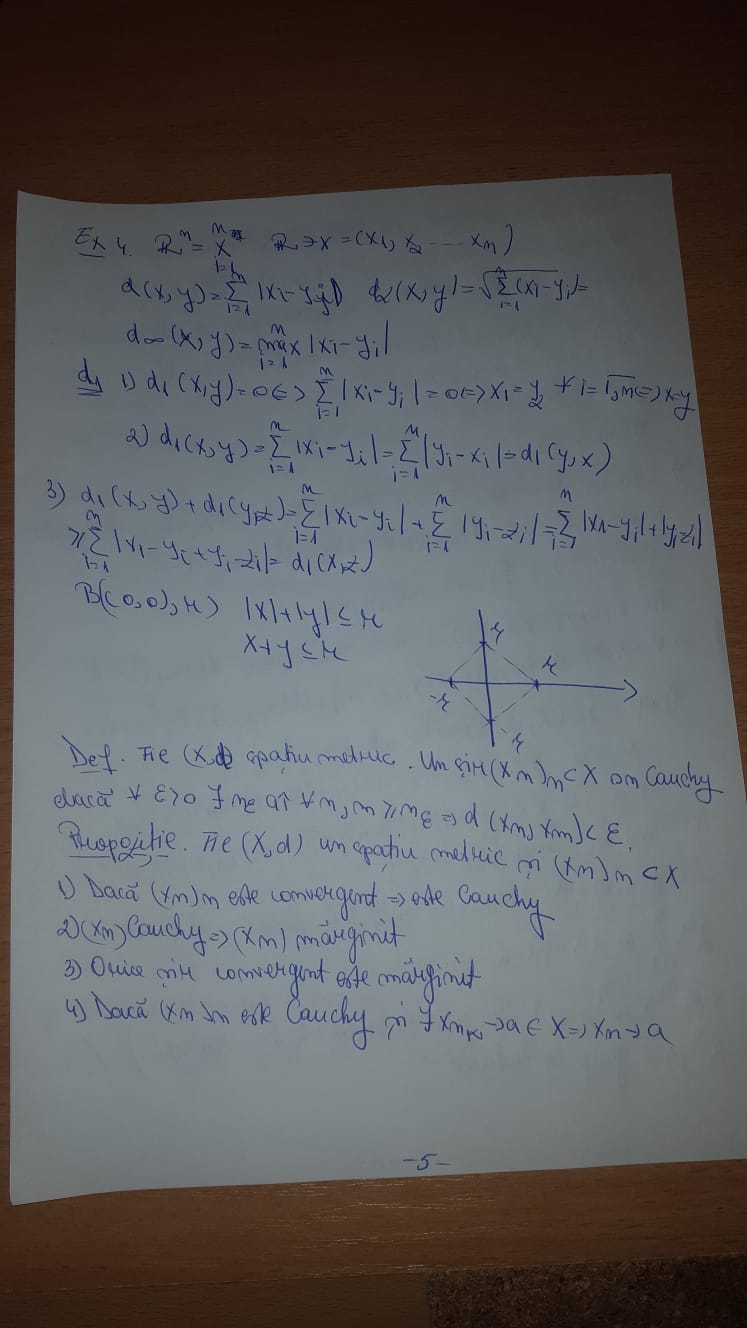 Ex 4. ℝⁿ = X ⁿ i=1 ℝ ∋ x = (x1, x2 ---- xn)
d(x, y) = Σ ⁿ i=1 |xi - yi| d2(x, y) = √Σ ⁿ i=1 (xi - yi)=
d∞(x, y) = max ⁿ i=1 |xi - yi|
d1 1) d1(x, y) = 0 <=> Σ ⁿ i=1 |xi - yi| = 0 <=> xi = yi ∀ i = 1,n <=> x = y
2) d1(x, y) = Σ ⁿ i=1 |xi - yi| = Σ ⁿ i=1 |yi - xi| = d1(y, x)
3) d1(x, y) + d1(y, z) = Σ ⁿ i=1 |xi - yi| + Σ ⁿ i=1 |yi - zi| = Σ ⁿ i=1 |xi - yi| + |yi - zi|
≥ Σ ⁿ i=1 |xi - yi + yi - zi| = d1(x, z)
B((0,0), r) |x| + |y| ≤ r
x + y ≤ r
r
r
-r
-r
Def. Fie (X, d) spațiu metric. Un șir (xn)n ⊂ X sn Cauchy
dacă ∀ ε > 0 ∃ nε aî ∀ n, m ≥ nε => d(xm, xn) < ε.
Propoziție. Fie (X, d) un spațiu metric și (xn)n ⊂ X
1) Dacă (xn)n este convergent => este Cauchy
2) (xn) Cauchy => (xn) mărginit
3) Orice șir convergent este mărginit
4) Dacă (xn)n este Cauchy și ∃ xnk -> a ∈ X => xn -> a
-5-